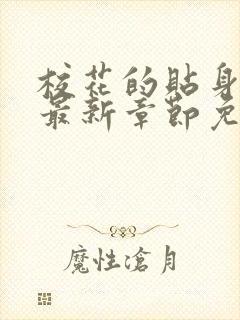 校花的貼身
最新章節免
魔性滄月